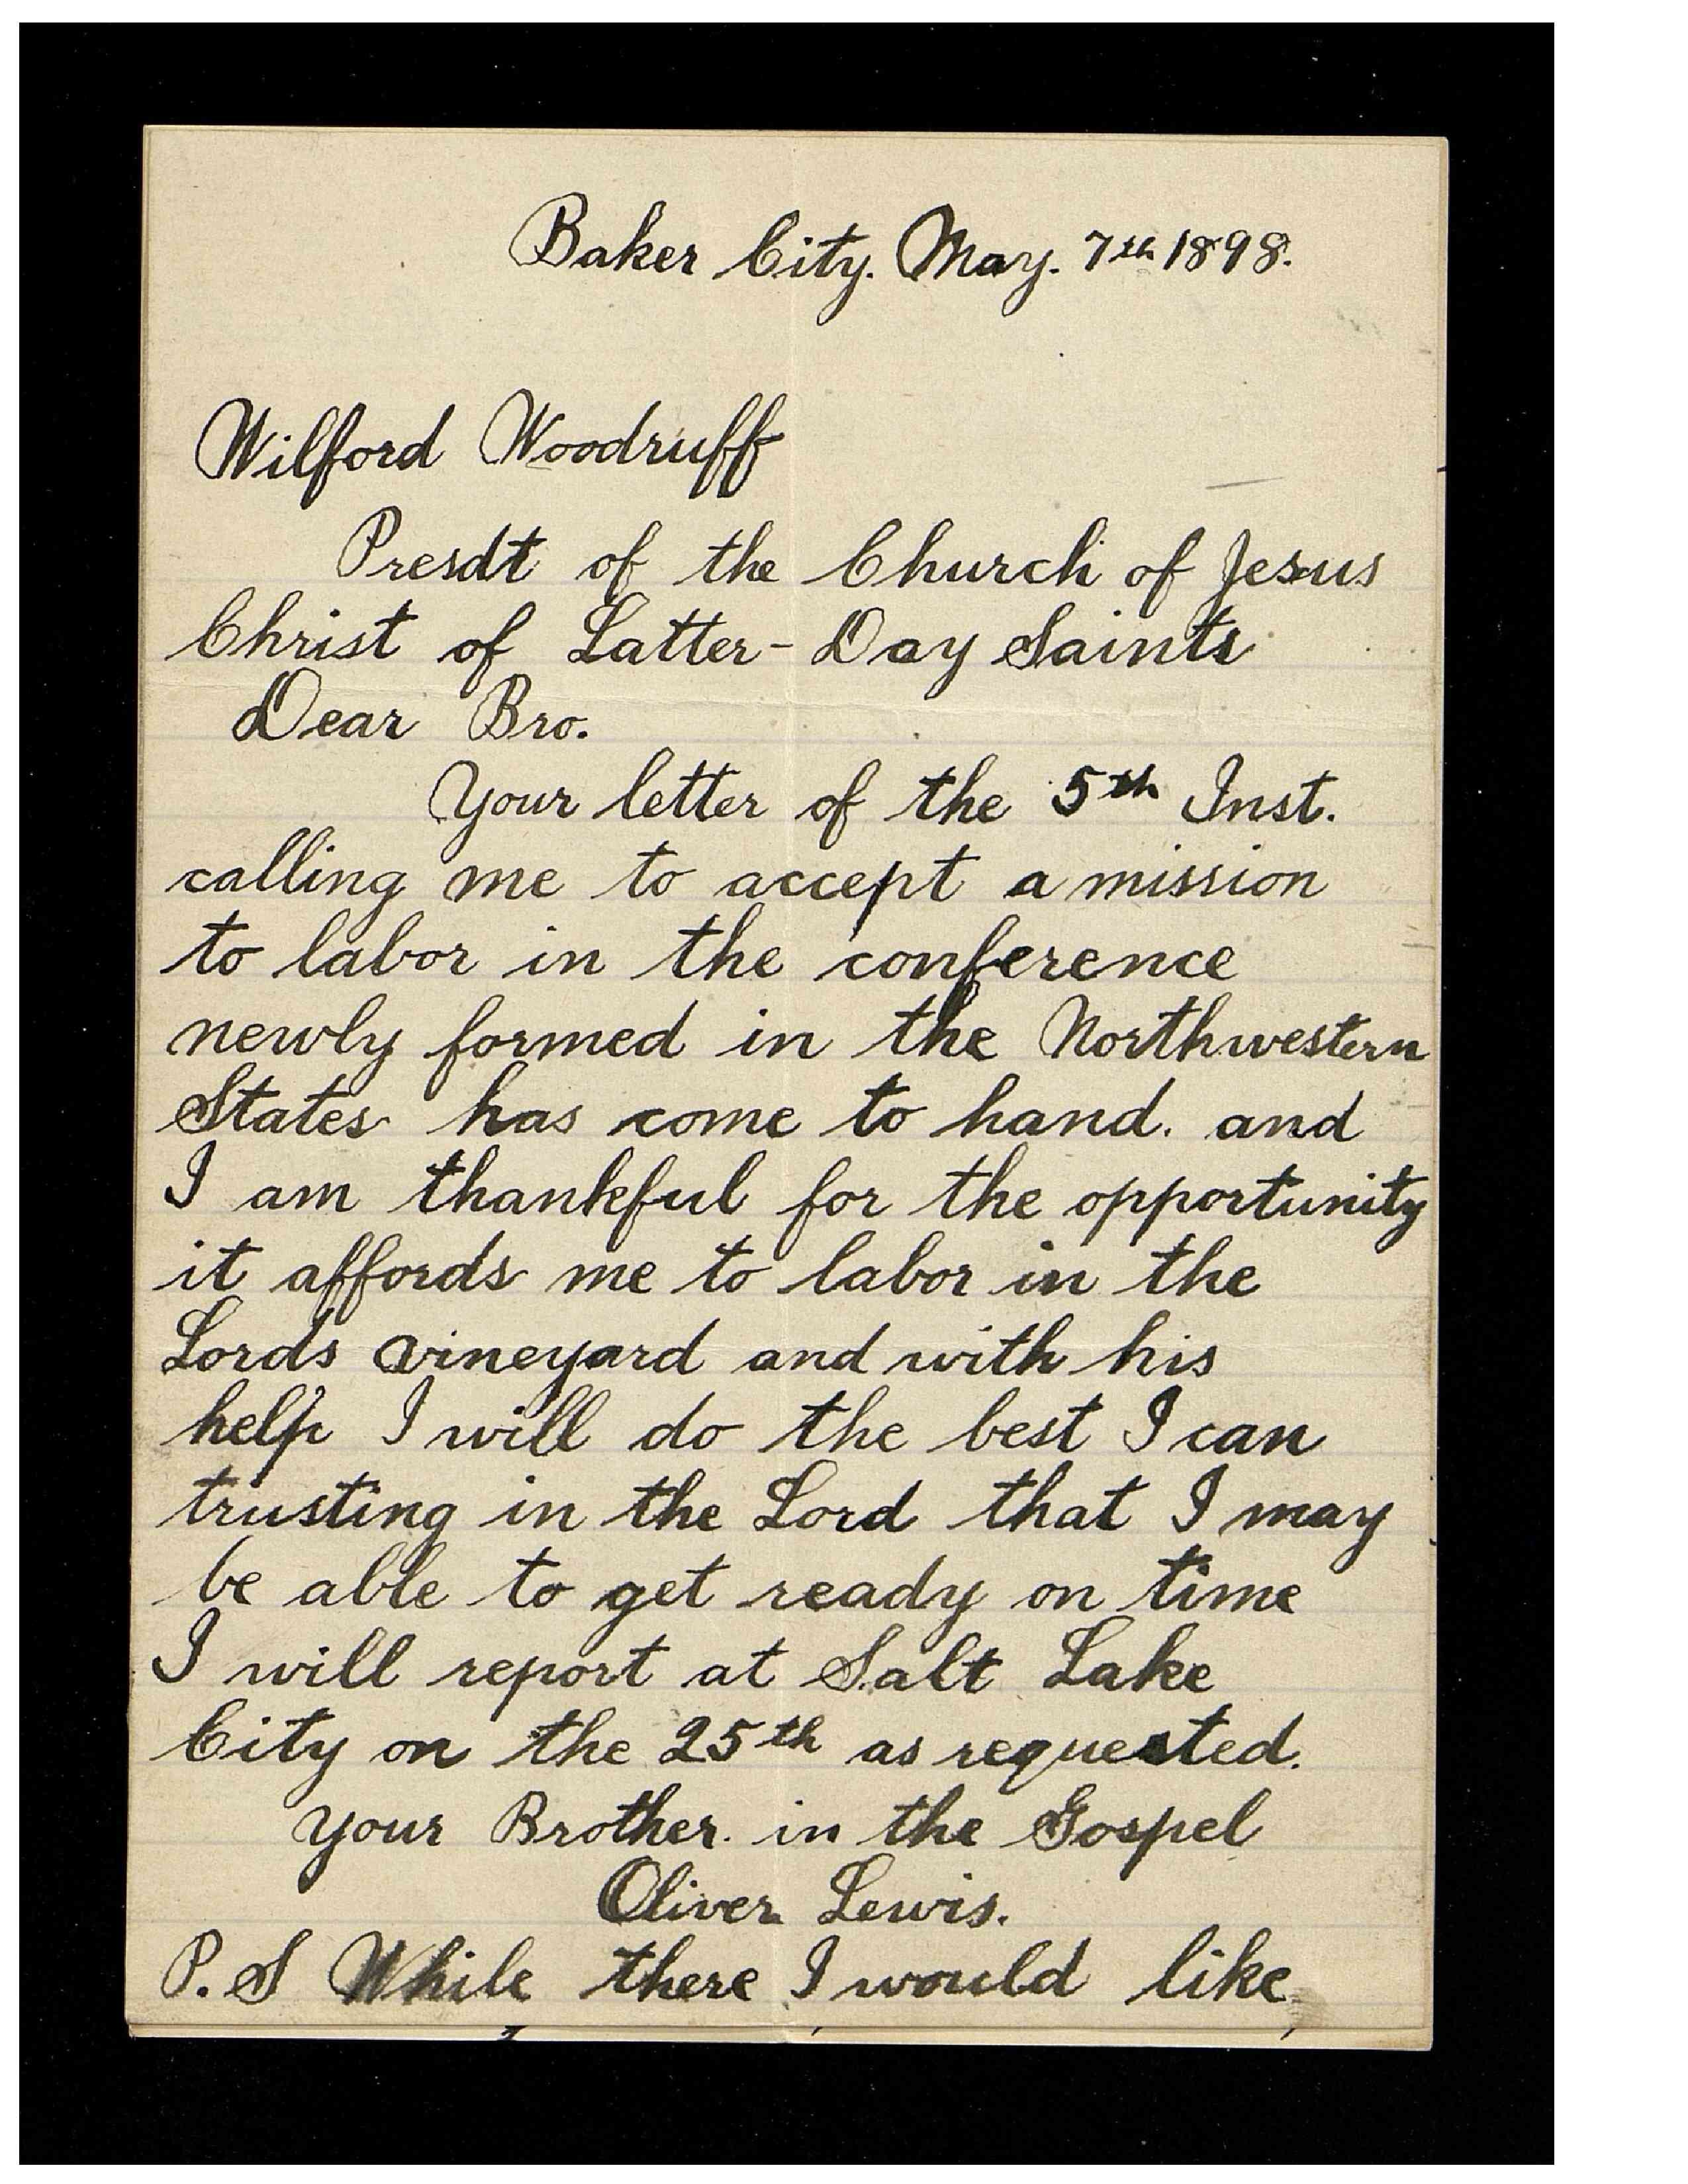 Baker City. May. 7th 1898.
Wilford Woodruff
Presdt of the Church of Jesus
Christ of Latter-Day Saints
Dear Bro.
Your letter of the 5th Inst.
calling me to accept a mission
to labor in the conference
newly formed in the Northwestern
States has come to hand. and
I am thankful for the opportunity
it affords me to labor in the
Lords vineyard and with his
help I will do the best I can
trusting in the Lord that I may
be able to get ready on time
I will report at Salt Lake
City on the 25th as requested.
Your Brother in the Gospel
Oliver Lewis.
P.S While there I would like